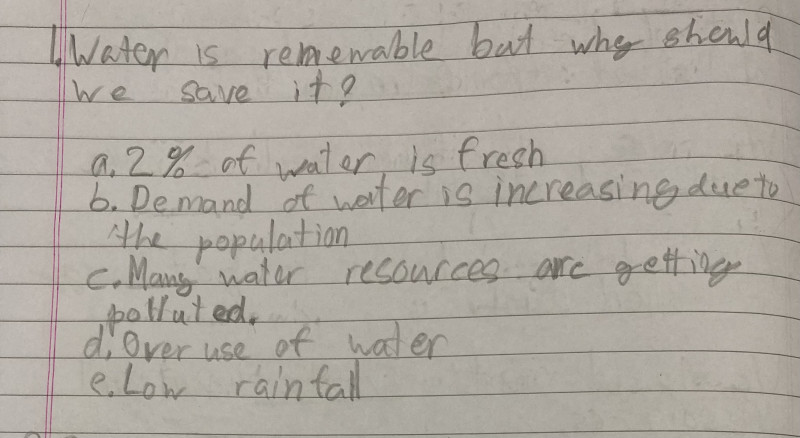 1. Water is renewable but why should
we save it?
a. 2% of water is fresh
b. Demand of water is increasing due to
the population
c. Many water resources are getting
polluted.
d. Over use of water
e. Low rainfall